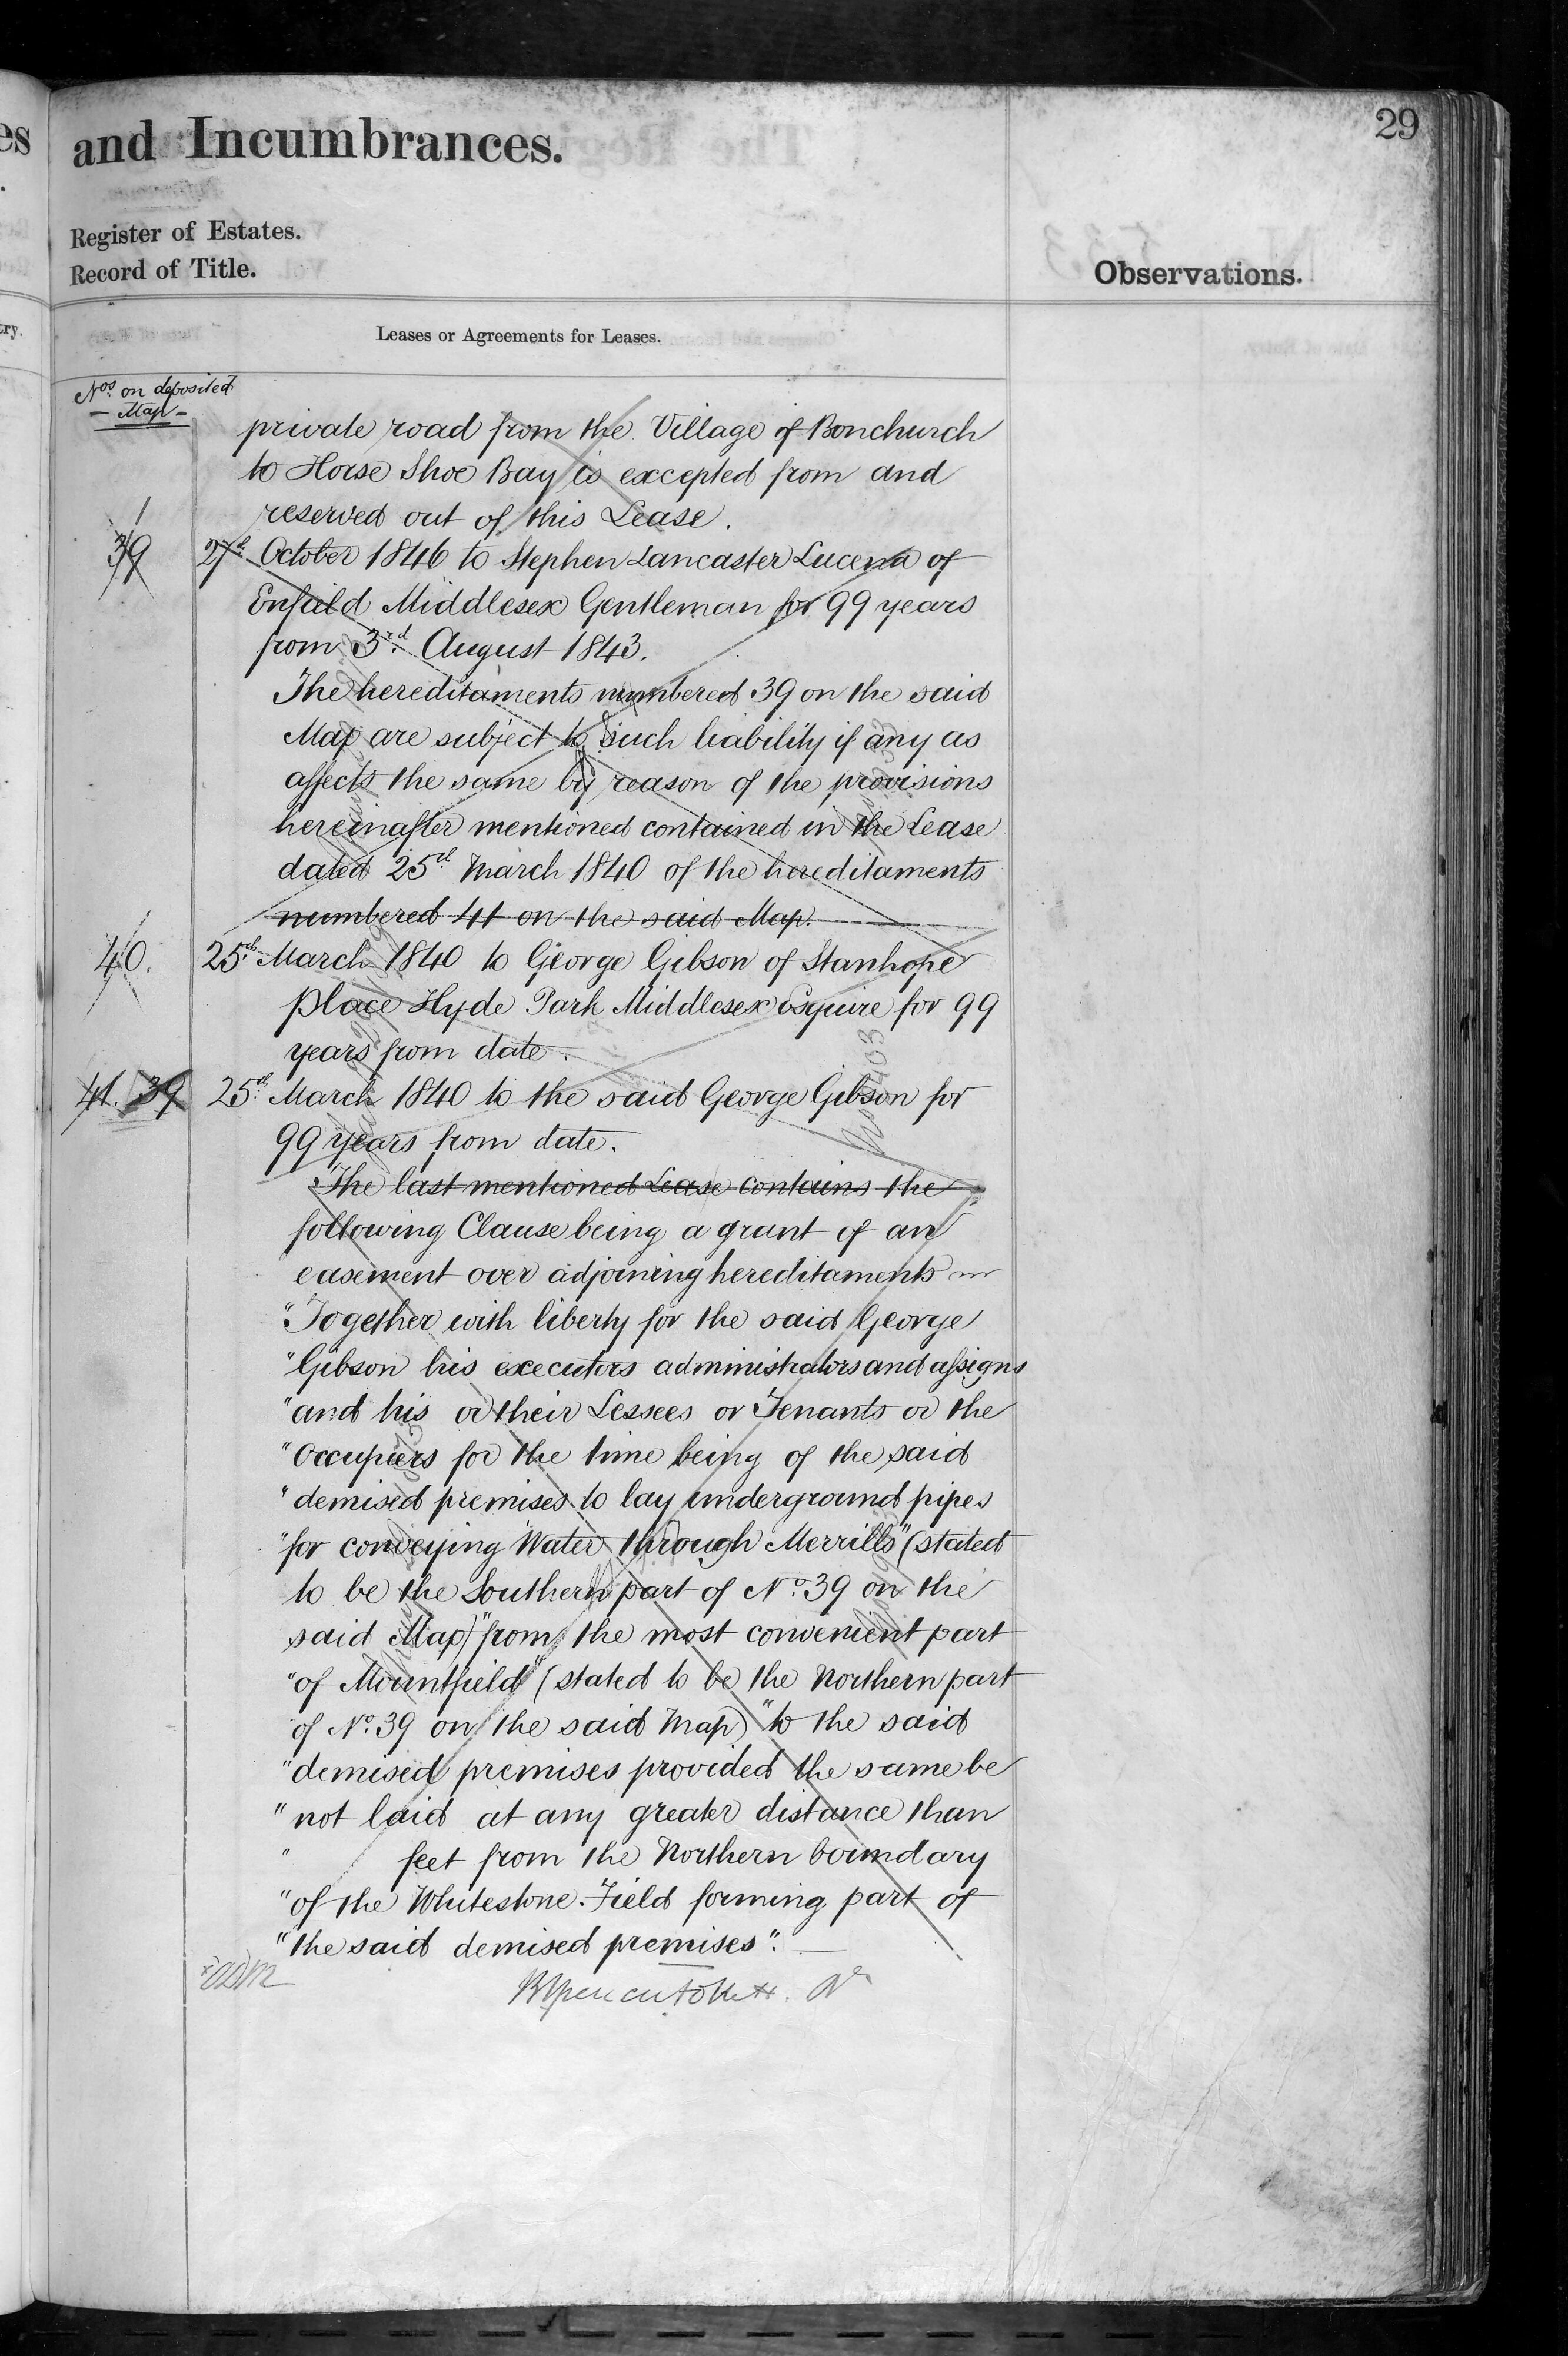 29
and Incumbrances.
Register of Estates.
Record of Title.
Observations.
Leases or Agreements for Leases.
Nos. on deposited
- Map -
private road from the Village of Bonchurch
to Horse Shoe Bay is excepted from and
reserved out of this Lease.
39 27th October 1846 to Stephen Lancaster Lucena of
Enfield Middlesex Gentleman for 99 years
from 3rd August 1843.
The hereditaments numbered 39 on the said
Map are subject to such liability if any as
affects the same by reason of the provisions
hereinafter mentioned contained in the Lease
dated 25th March 1840 of the hereditaments
numbered 41 on the said Map.
40. 25th March 1840 to George Gibson of Stanhope
place Hyde Park Middlesex Esquire for 99
years from date.
41. 39 25th March 1840 to the said George Gibson for
99 years from date.
The last mentioned Lease contains the
following Clause being a grant of an
easement over adjoining hereditaments
"Together with liberty for the said George
"Gibson his executors administrators and assigns
"and his or their Lessees or Tenants or the
"Occupiers for the time being of the said
"demised premises to lay underground pipes
"for conveying Water through Merrills" (stated
to be the Southern part of No. 39 on the
said Map) "from the most convenient part
"of Mountfield" (stated to be the Northern part
of No. 39 on the said Map) "to the said
"demised premises provided the same be
"not laid at any greater distance than
" feet from the Northern boundary
"of the Whitestone Field forming part of
"the said demised premises".